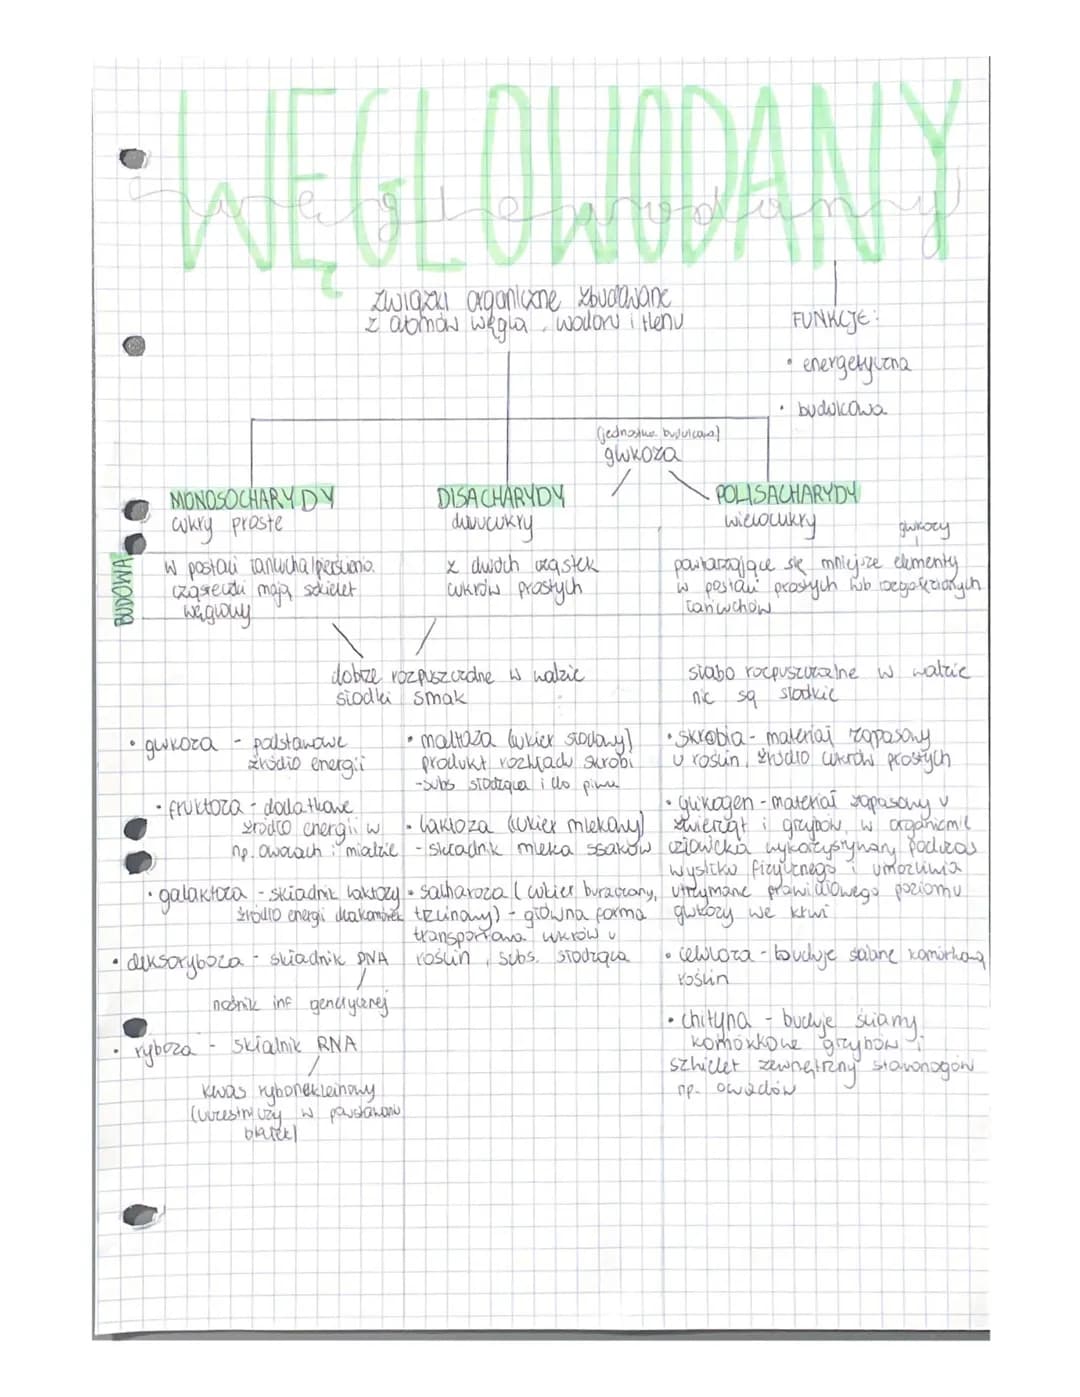 WĘGLOWODANY
węglowodany
związki organiczne zbudowane
z atomów węgla, wodoru i tlenu
FUNKCJE:
• energetyczna
• budulcowa
(jednostka budulcowa)
glukoza
MONOSOCHARYDY
cukry proste
DISACHARYDY
dwucukry
POLISACHARYDY
wielocukry
glukozy
BUDOWA
w postaci łańcucha/pierścienia
cząsteczki mają szkielet
węglowy
z dwóch cząstek
cukrów prostych
powtarzające się mniejsze elementy
w postaci prostych lub rozgałęzionych
łańcuchów
dobrze rozpuszczalne w wodzie
słodki smak
słabo rozpuszczalne w wodzie
nie są słodkie
• glukoza - podstawowe
źródło energii
• fruktoza - dodatkowe
źródło energii w
np. owocach i miodzie
• galaktoza - składnik laktozy
źródło energii dla komórek
• deksoryboza - składnik DNA
nośnik inf genetycznej
• ryboza - składnik RNA
kwas rybonukleinowy
(uczestniczy w powstawaniu
białek)
• maltoza (cukier słodowy)
produkt rozkładu skrobi
- subs słodząca i do piwa
• laktoza (cukier mlekowy)
- składnik mleka ssaków
• sacharoza (cukier buraczany,
trzcinowy) - główna forma
transportowa cukrów u
roślin, subs. słodząca
• skrobia - materiał zapasowy
u roślin, źródło cukrów prostych
• glikogen - materiał zapasowy u
zwierząt i grzybów, w organizmie
człowieka wykorzystywany podczas
wysiłku fizycznego i umożliwia
utrzymanie prawidłowego poziomu
glukozy we krwi
• celuloza - buduje ścianę komórkową
roślin
• chityna - buduje ściany
komórkowe grzybów i
szkielet zewnętrzny stawonogów
np. owadów